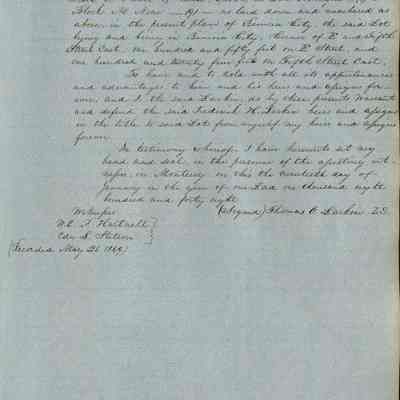 Block No. Nine — 9 — as laid down and numbered as
above, in the present plan of Benicia City, the said Lot
lying and being in Benicia City, corner of E and Fifth
Street East, one hundred and fifty feet on E Street, and
one hundred and twenty five feet on Fifth Street East.
To have and to hold with all its appurtenances
and advantages to him and his heirs and assigns for-
ever, and I the said Larkin, do by these presents Warrant
and defend the said Frederick H. Larkin heirs and assigns
in the title to said Lot from myself my heirs and assigns
forever
In testimony whereof I have hereunto set my
hand and seal, in the presence of the
in Monterey on this the twentieth day of
January in the year of our Lord one thousand eight
hundred and forty eight
Witnesses (Signed) Thomas O. Larkin L.S.
W. E. P. Hartnell
(Recorded May 21